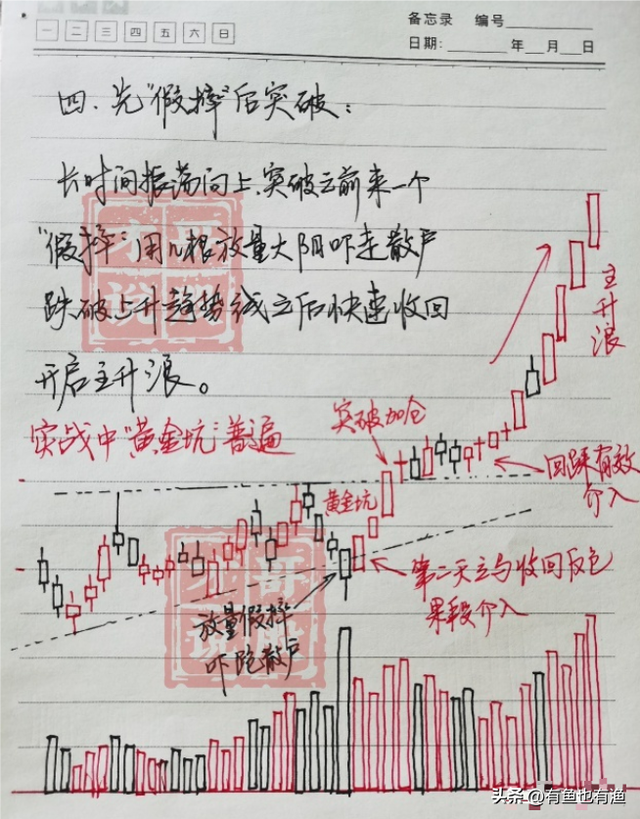 备忘录 编号
一 二 三 四 五 六 日
日期: 年 月 日
四.先“假摔”后突破:
长时间振荡向上.突破之前来一个
“假摔”用几根放量大阴吓走散户
跌破上升趋势线之后快速收回
开启主升浪。
实战中“黄金坑”普遍
突破加仓
主升浪
回踩有效
介入
黄金坑
第二天立马收回反包
果断介入
放量假摔
吓跑散户
头条 @有鱼也有渔